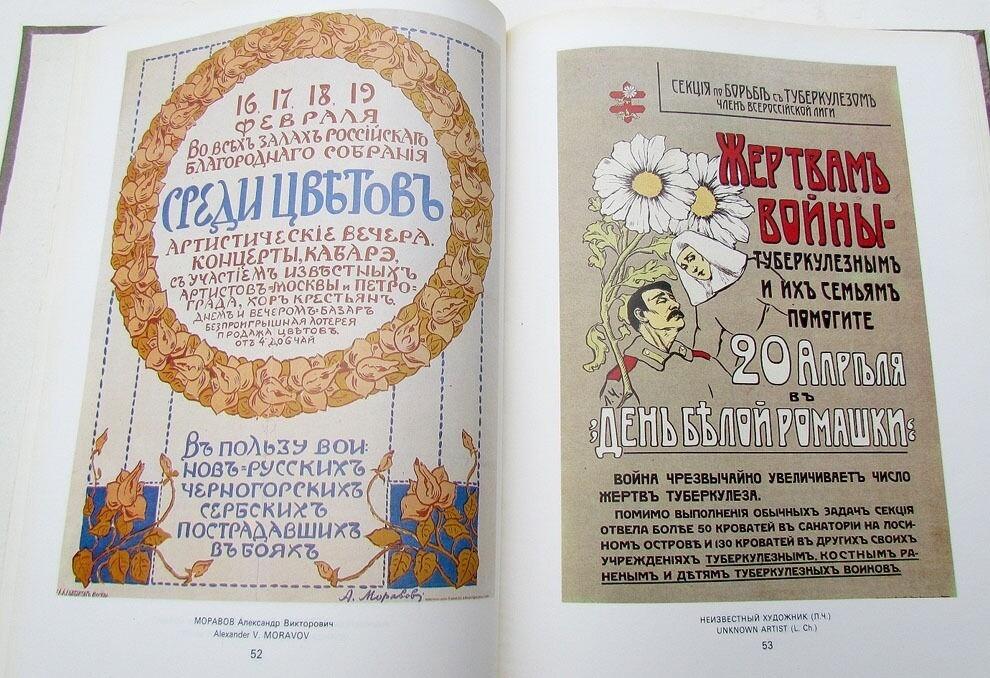 16. 17. 18. 19
ФЕВРАЛЯ
ВО ВСѢХЪ ЗАЛАХЪ РОССІЙСКАГО
БЛАГОРОДНАГО СОБРАНІЯ
СРЕДИ ЦВѢТОВЪ
АРТИСТИЧЕСКІЕ ВЕЧЕРА.
КОНЦЕРТЫ, КАБАРЭ,
СЪ УЧАСТІЕМЪ ИЗВѢСТНЫХЪ
АРТИСТОВЪ=МОСКВЫ И ПЕТРО-
ГРАДА, ХОРЪ КРЕСТЬЯНЪ,
ДНЕМЪ И ВЕЧЕРОМЪ=БАЗАРЪ
БЕЗПРОИГРЫШНАЯ ЛОТЕРЕЯ
ПРОДАЖА ЦВѢТОВЪ.
ОТЪ 4 ДО 6 ЧАЙ
ВЪ ПОЛЬЗУ ВОИ=
НОВЪ=РУССКИХЪ
ЧЕРНОГОРСКИХЪ
СЕРБСКИХЪ
ПОСТРАДАВШИХЪ
ВЪ БОЯХЪ
А. Моравовъ
МОРАВОВ Александр Викторович
Alexander V. MORAVOV
52
СЕКЦІЯ ПО БОРЬБѢ СЪ ТУБЕРКУЛЕЗОМЪ
ЧЛЕНЪ ВСЕРОССІЙСКОЙ ЛИГИ
ЖЕРТВАМЪ
ВОЙНЫ-
ТУБЕРКУЛЕЗНЫМЪ
И ИХЪ СЕМЬЯМЪ
ПОМОГИТЕ
20 АПРѢЛЯ
ВЪ
„ДЕНЬ БѢЛОЙ РОМАШКИ“
Л.Ч.
ВОЙНА ЧРЕЗВЫЧАЙНО УВЕЛИЧИВАЕТЪ ЧИСЛО
ЖЕРТВЪ ТУБЕРКУЛЕЗА.
ПОМИМО ВЫПОЛНЕНІЯ ОБЫЧНЫХЪ ЗАДАЧЪ СЕКЦІЯ
ОТВЕЛА БОЛѢЕ 50 КРОВАТЕЙ ВЪ САНАТОРІИ НА ЛОСИ-
НОМЪ ОСТРОВѢ И 130 КРОВАТЕЙ ВЪ ДРУГИХЪ СВОИХЪ
УЧРЕЖДЕНІЯХЪ ТУБЕРКУЛЕЗНЫМЪ, КОСТНЫМЪ РА-
НЕНЫМЪ И ДѢТЯМЪ ТУБЕРКУЛЕЗНЫХЪ ВОИНОВЪ.
НЕИЗВЕСТНЫЙ ХУДОЖНИК (Л.Ч.)
UNKNOWN ARTIST (L. Ch.)
53